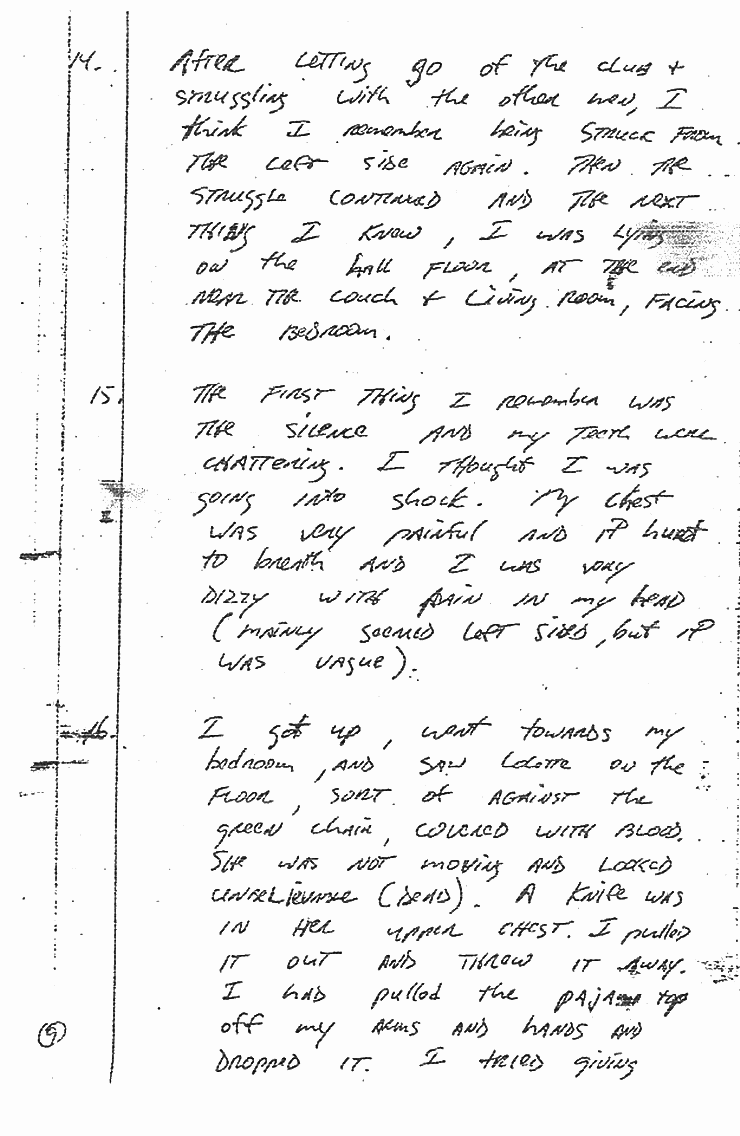 14. After letting go of the club +
struggling with the other men, I
think I remember being struck from
the left side again. Then the
struggle continued and the next
thing I knew, I was lying
on the hall floor, at the end
near the couch + living room, facing
the bedroom.
15. The first thing I remember was
the silence and my teeth were
chattering. I thought I was
going into shock. My chest
was very painful and it hurt
to breath and I was very
dizzy with pain in my head
(mainly seemed left sided, but it
was vague).
16. I got up, went towards my
bedroom, and saw Colette on the
floor, sort of against the
green chair, covered with blood.
She was not moving and looked
unbelievable (dead). A knife was
in her upper chest. I pulled
it out and threw it away.
I had pulled the pajama top
off my arms and hands and
dropped it. I tried giving
9